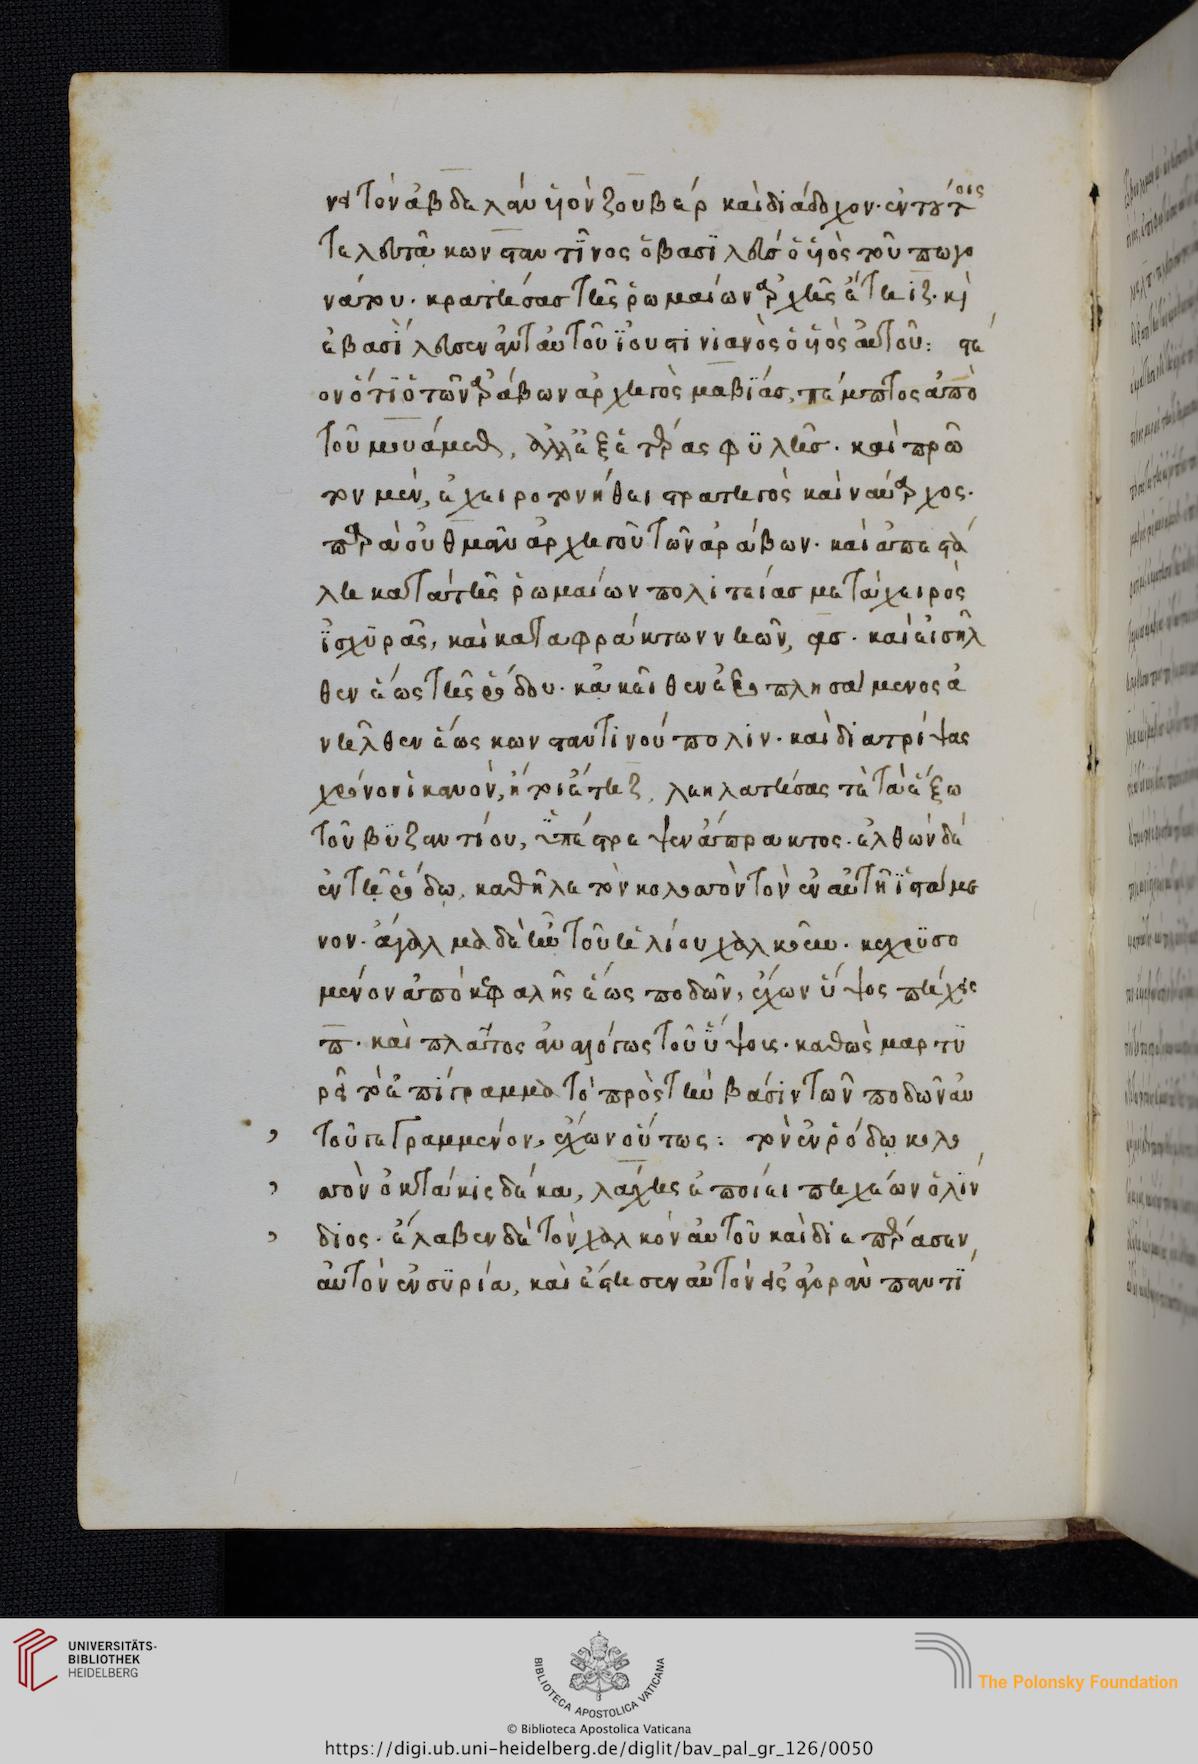 νει τὸν ἀβδελὰν υἱὸν ζουβὲρ καὶ διάδοχον· ἐν τούτοις
τελευτᾶ κωνσταντῖνος ὁ βασϊλεὺσ ὁ υἱὸς τοῦ πωγο
νάτου· κρατήσασ τῆς ῥωμαίων ἀρχῆς ἔτη ιζ· κὶ
ἐβασίλευσεν ἀντ αὐτοῦ ϊουστινιανὸς ὁ υἱὸς αὐτοῦ: στέ
ον ὅτϊ ὁ τῶν ἀράβων ἀρχηγὸς μαβΐας, πέμπτος ἀπὸ
τοῦ μουάμεθ, ἀλλ ἐξ ἑτέρας φϋλῆσ· καὶ πρῶ
τον μὲν, ἐχειροτονήθει στρατηγὸς καὶ ναύαρχος·
παρὰ οὐθμὰν ἀρχηγοῦ τῶν ἀράβων· καὶ ἀπεστά
λη κατὰ τῆς ῥωμαίων πολιτείασ μετὰ χειρὸς
ϊσχϋρᾶς, καὶ καταφράκτων νηῶν, ασ· καὶ εἰσῆλ
θεν ἕως τῆς ῥόδου· κἀκεῖθεν ἐξοπλησάμενος ἀ
νῆλθεν ἕως κωνσταντινούπολιν· καὶ διατρίψας
χρόνον ἱκανὸν, ἤτοι ἔτη ζ, λεηλατήσας τὲ τὰ ἔξω
τοῦ βϋζαντίου, ϋπέστρεψεν ἄπρακτος· ἐλθὼν δὲ
ἐν τῆ ῥόδω, καθῆλε τὸν κολοσσὸν τὸν ἐν αὐτῆ ϊστάμε
νον· ἄγαλμα δὲ ἦν τοῦ ἡλίου χαλκοῦν· κεχρϋσο
μένον ἀπὸ κεφαλῆς ἕως ποδῶν, ἔχων ὕψος πήχεις
π· καὶ πλάτος ἀναλόγως τοῦ ὕψους· καθὼς μαρτϋ
ρεῖ τὸ ἐπίγραμμα τὸ πρὸς τὴν βάσιν τῶν ποδῶν αὐ
τοῦ γεγραμμένον, ἔχων οὕτως: τὸν ἐν ῥόδω κολο
σσὸν ὀκτάκις δέκα, λάχης ἐποίει πηχέων ὁ λίν
διος· ἔλαβεν δὲ τὸν χαλκὸν αὐτοῦ καὶ διεπέρασεν
αὐτὸν ἐν σϋρία, καὶ ἔστησεν αὐτὸν εἰς ἀγορὰν παντϊ
UNIVERSITÄTS-
BIBLIOTHEK
HEIDELBERG
BIBLIOTECA APOSTOLICA VATICANA
The Polonsky Foundation
© Biblioteca Apostolica Vaticana
https://digi.ub.uni-heidelberg.de/diglit/bav_pal_gr_126/0050